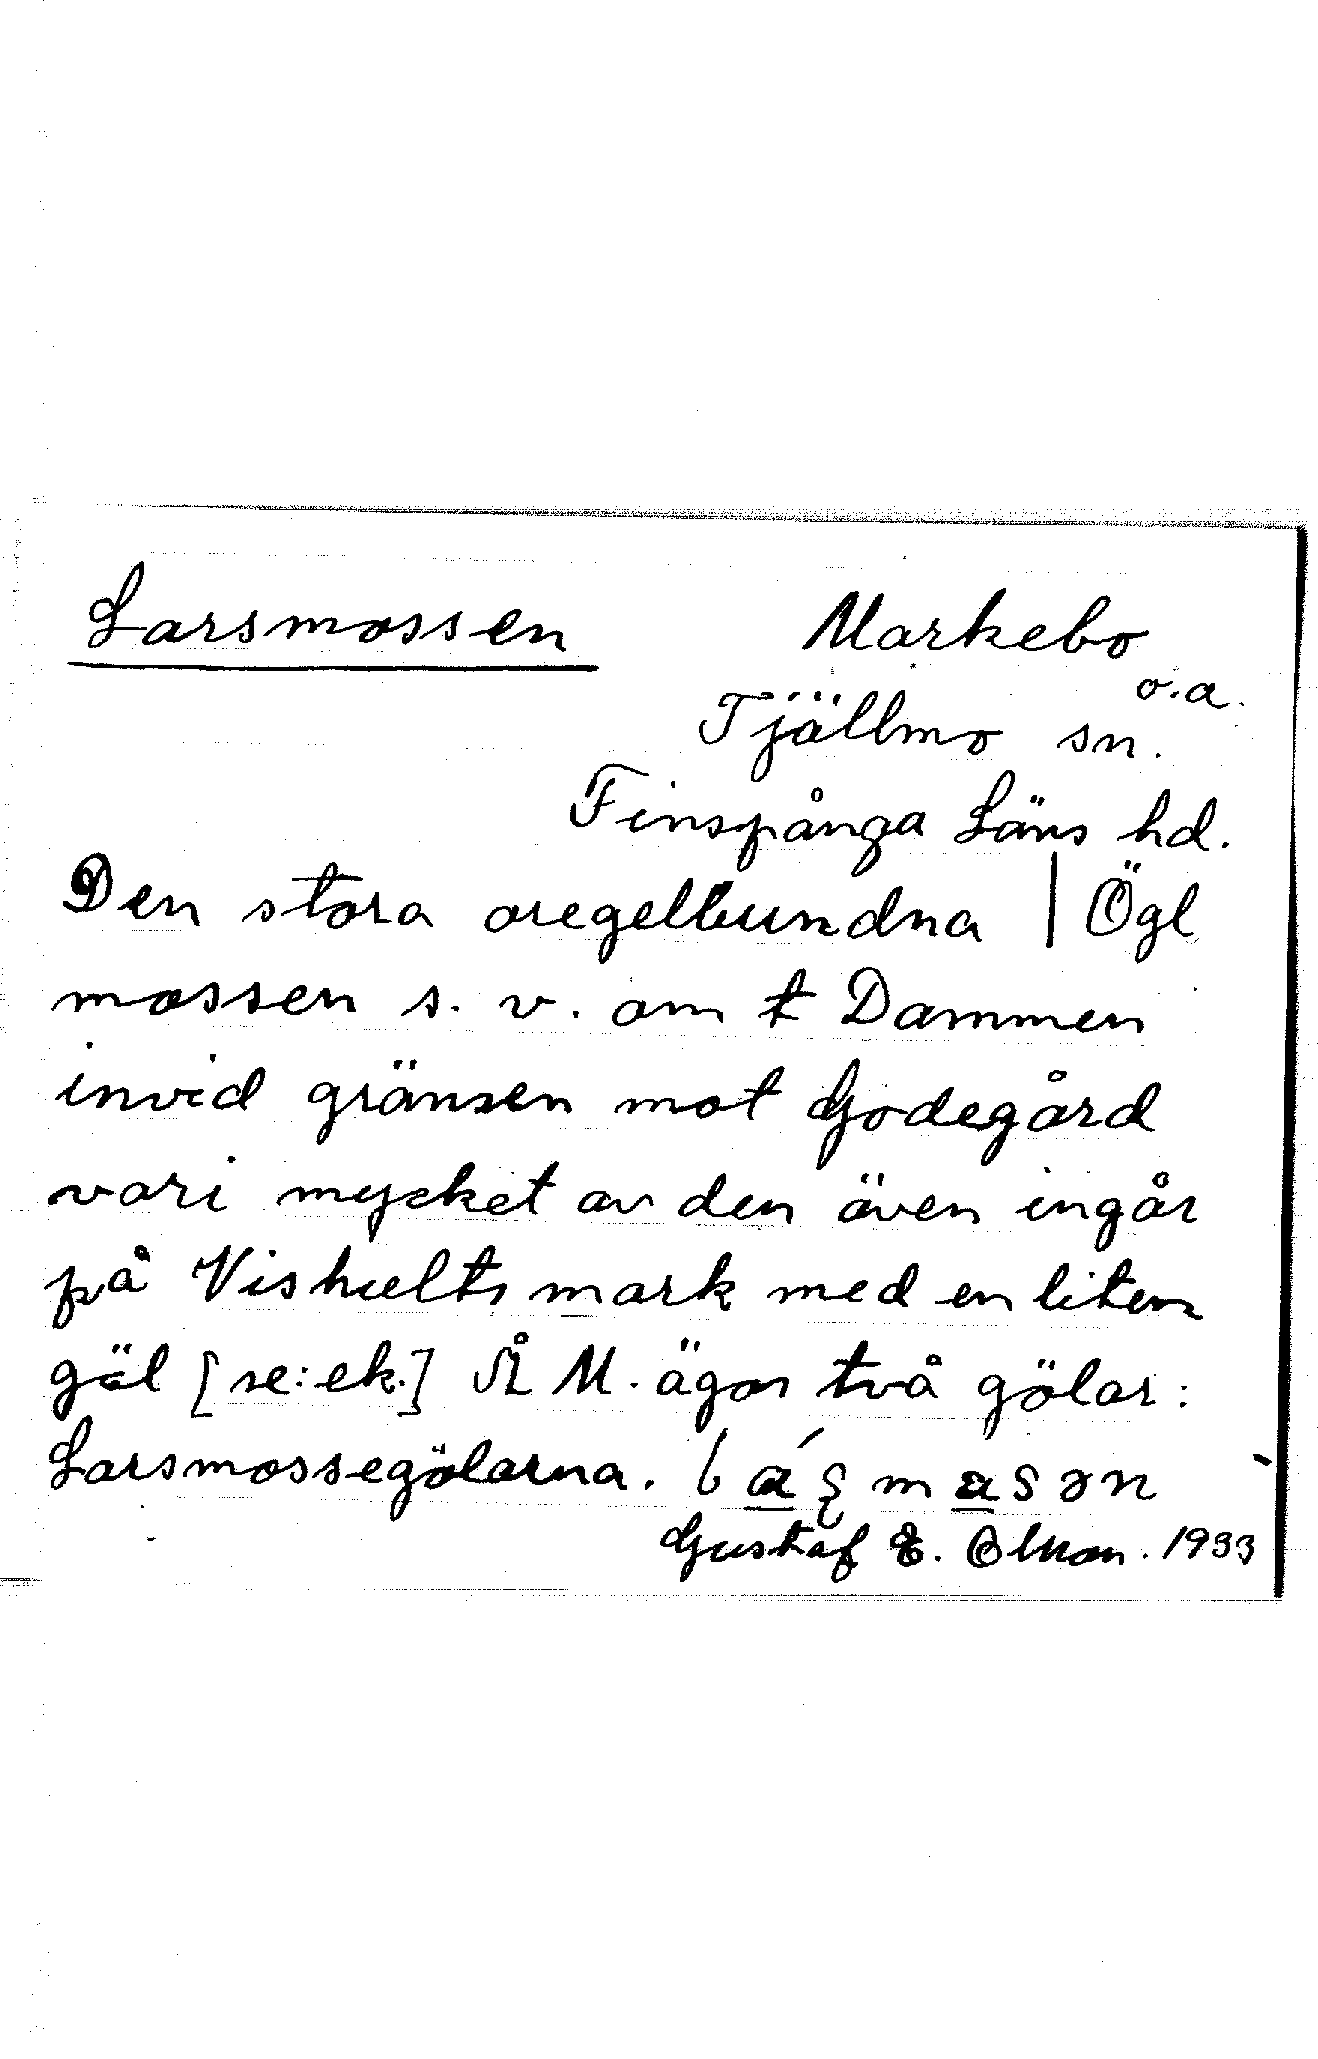 Larsmossen Markebo
o.a.
Tjällmo sn.
Finspånga Läns hd.
Den stora oregelbundna | Ögl
mossen s. v. om t Dammen
invid gränsen mot Godegård
vari mycket av den även ingår
på Vishults mark med en liten
göl [se: ek.] Å M. ägor två gölar:
Larsmossegölarna.
Gustaf E. Olsson. 1933